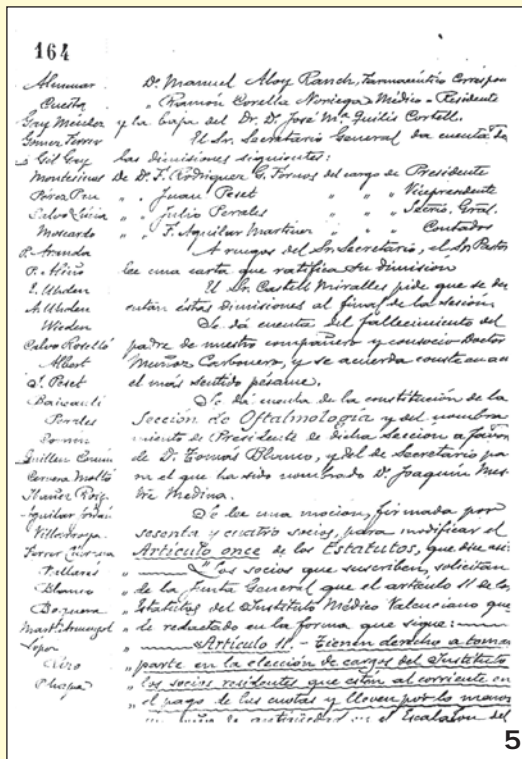 164
Almenar
Cuesta
Gay Méndez
Gómez Ferrer
Gil Gay
Montesinos
Pérez Peu
Calvo
Moscardó
P. Aranda
P. Miño
E. Umden
A. Umden
Wieden
Calvo Roselló
Albert
J. Peset
Baixauli
Perales
Guillen
Cervera Moltó
Ibáñez Roig
Aguilar
Villarroya
Ferrer
Vallarés
Blanco
Boquera
López
D. Manuel Aloy Ranch, Farmacéutico Correspon
" Ramón Corella Noriega Médico - Residente
y la baja del Dr. D. José Mª Guilis Cortell.
El Sr. Secretario General da cuenta de
las dimisiones siguientes:
De D. F. Rodriguez G. Fornos del cargo de Presidente
" " Juan Peset " " Vicepresidente
" " Julio Perales " " Secrio. Gral.
" " F. Aguilar Martinez " " Contador
A ruegos del Sr. Secretario, el Sr. Pastor
lee una carta que ratifica su dimisión
El Sr. Castells Miralles pide que se dis
cutan éstas dimisiones al final de la sesión
Se dá cuenta del fallecimiento del
padre de nuestro compañero y consocio Doctor
Muñoz Carbonero, y se acuerda conste en acta
el más sentido pésame.
Se dá cuenta de la constitución de la
Sección de Oftalmología y del nombra
miento de Presidente de dicha Seccion a favor
de D. Tomás Blanco, y del de Secretario pa
ra el que ha sido nombrado D. Joaquín Mes
tre Medina.
Se lee una moción, firmada por
sesenta y cuatro socios, para modificar el
Artículo once de los Estatutos, que dice asi:
" Los socios que suscriben, solicitan
" de la Junta General que el artículo 11 de los
" Estatutos del Instituto Médico Valenciano que
" de redactado en la forma que sigue:
" Artículo 11. - Tienen derecho a tomar
" parte en la elección de cargos del Instituto
" los socios residentes que están al corriente en
" el pago de las cuotas y lleven por lo menos
" de antigüedad en el Escalafón del
5